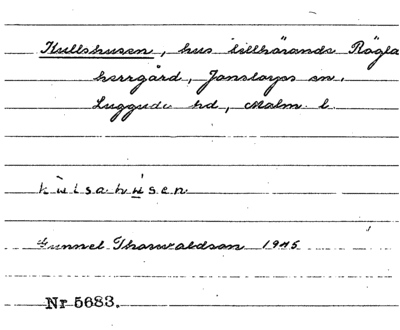 Kullshusen, hus tillhörande Rögla
herrgård, Jonstorps sn.
Luggude hd, Malm. l.
kùlsahùsen
Gunnel Thorwaldson 1945
Nr 5683.